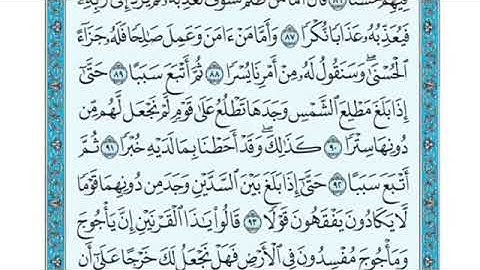 فِيهِمْ حُسْنًا ٨٦ قَالَ أَمَّا مَن ظَلَمَ فَسَوْفَ نُعَذِّبُهُۥ ثُمَّ يُرَدُّ إِلَىٰ رَبِّهِۦ
فَيُعَذِّبُهُۥ عَذَابًا نُّكْرًا ٨٧ وَأَمَّا مَنْ ءَامَنَ وَعَمِلَ صَٰلِحًا فَلَهُۥ جَزَآءً
ٱلْحُسْنَىٰ ۖ وَسَنَقُولُ لَهُۥ مِنْ أَمْرِنَا يُسْرًا ٨٨ ثُمَّ أَتْبَعَ سَبَبًا ٨٩ حَتَّىٰٓ
إِذَا بَلَغَ مَطْلِعَ ٱلشَّمْسِ وَجَدَهَا تَطْلُعُ عَلَىٰ قَوْمٍ لَّمْ نَجْعَل لَّهُم مِّن
دُونِهَا سِتْرًا ٩٠ كَذَٰلِكَ ۖ وَقَدْ أَحَطْنَا بِمَا لَدَيْهِ خُبْرًا ٩١ ثُمَّ
أَتْبَعَ سَبَبًا ٩٢ حَتَّىٰٓ إِذَا بَلَغَ بَيْنَ ٱلسَّدَّيْنِ وَجَدَ مِن دُونِهِمَا قَوْمًا
لَّا يَكَادُونَ يَفْقَهُونَ قَوْلًا ٩٣ قَالُوا۟ يَٰذَا ٱلْقَرْنَيْنِ إِنَّ يَأْجُوجَ
وَمَأْجُوجَ مُفْسِدُونَ فِى ٱلْأَرْضِ فَهَلْ نَجْعَلُ لَكَ خَرْجًا عَلَىٰٓ أَن